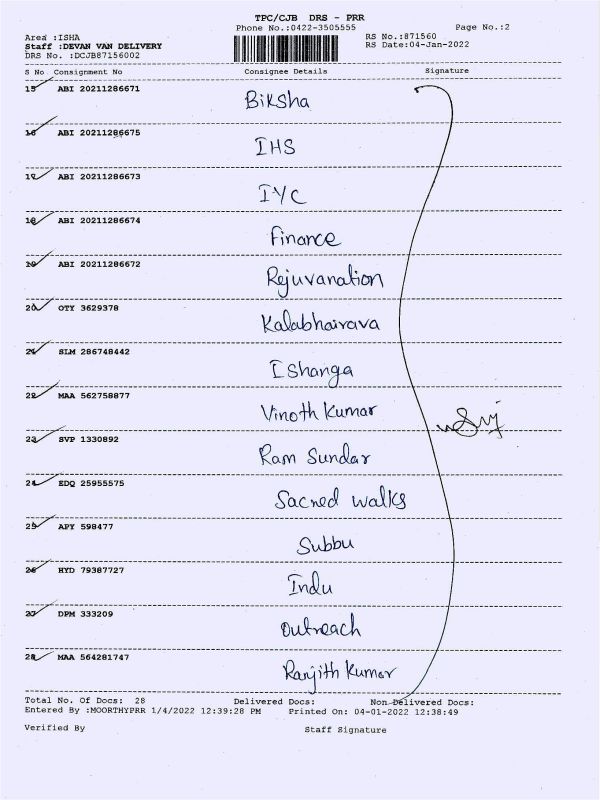 TPC/CJB DRS - PRR
Phone No.:0422-3505555 Page No.:2
Area :ISHA RS No.:871560
Staff :DEVAN VAN DELIVERY RS Date:04-Jan-2022
DRS No. :DCJB87156002
S No Consignment No Consignee Details Signature
15 ABI 20211286671 Biksha
16 ABI 20211286675 IHS
17 ABI 20211286673 IYC
18 ABI 20211286674 Finance
19 ABI 20211286672 Rejuvanation
20 OTY 3629378 Kalabhairava
21 SLM 286748442 Ishanga
22 MAA 562758877 Vinoth Kumar
23 SVP 1330892 Ram Sundar
24 EDQ 25955575 Sacred walks
25 APY 598477 Subbu
26 HYD 79387727 Indu
27 DPM 333209 Outreach
28 MAA 564281747 Ranjith Kumar
Total No. Of Docs: 28 Delivered Docs: Non Delivered Docs:
Entered By :MOORTHYPRR 1/4/2022 12:39:28 PM Printed On: 04-01-2022 12:38:49
Verified By Staff Signature